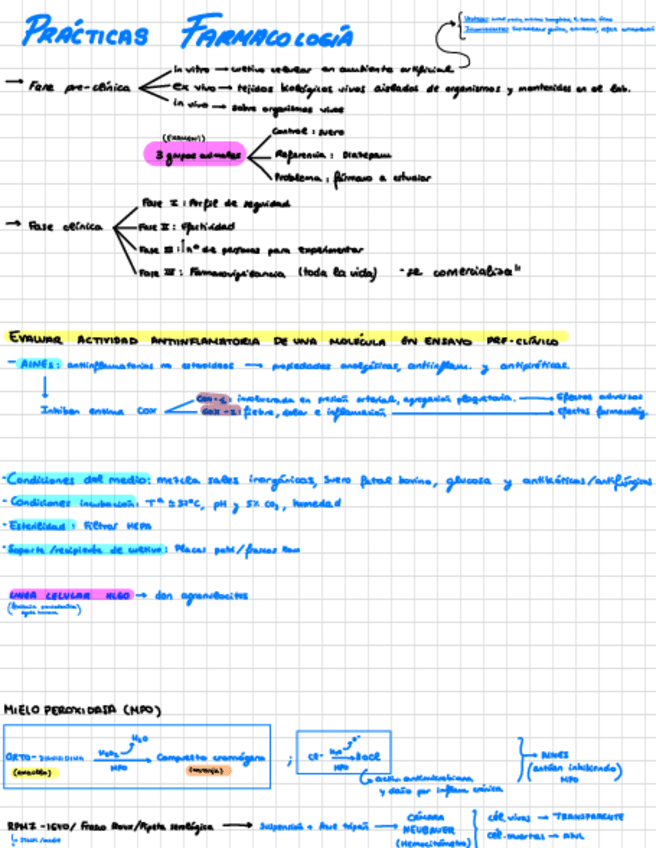 PRÁCTICAS FARMACOLOGÍA
in vitro → cultivo celular en ambiente artificial
→ Fase pre-clínica
ex vivo → tejidos biológicos vivos aislados de organismos y mantenidos en el lab.
in vivo → sobre organismos vivos
Control: suero
3 grupos animales
Referencia: Diazepam
Problema: fármaco a estudiar
Fase I: Perfil de seguridad
→ Fase clínica
Fase II: Efectividad
Fase III: ↑nº de personas para experimentar
Fase IV: Farmacovigilancia (toda la vida) "se comercializa"
EVALUAR ACTIVIDAD ANTIINFLAMATORIA DE UNA MOLÉCULA EN ENSAYO PRE-CLÍNICO
- AINES: antiinflamatorios no esteroideos → propiedades analgésicas, antiinflam. y antipiréticas.
COX-1: involucrada en presión arterial, agregación plaquetaria. → Efectos adversos
Inhiben enzima COX
COX-2: fiebre, dolor e inflamación → efectos farmacológ.
- Condiciones del medio: mezcla sales inorgánicas, suero fetal bovino, glucosa y antibióticos/antifúngicos
- Condiciones incubación: Tª ± 37ºC, pH y 5% CO2, humedad
- Esterilidad: Filtros HEPA
- Soporte/recipiente de cultivo: Placas petri/frascos Roux
LÍNEA CELULAR HL60 → dan agranulocitos
MIELOPEROXIDASA (MPO)
H2O
ORTO-DIANISIDINA H2O2 → MPO Compuesto cromógeno ; Cl- H2O2 → MPO HOCl → AINES
(amarillo) (naranja) (actúan inhibiendo MPO)
acción antimicrobiana
y daño por inflam. crónica
RPMI-1640/ Frasco Roux/Pipeta serológica → Suspensión + Azul tripán → CÁMARA NEUBAUER (Hemocitómetro)
cél. vivas → TRANSPARENTE
cél. muertas → AZUL